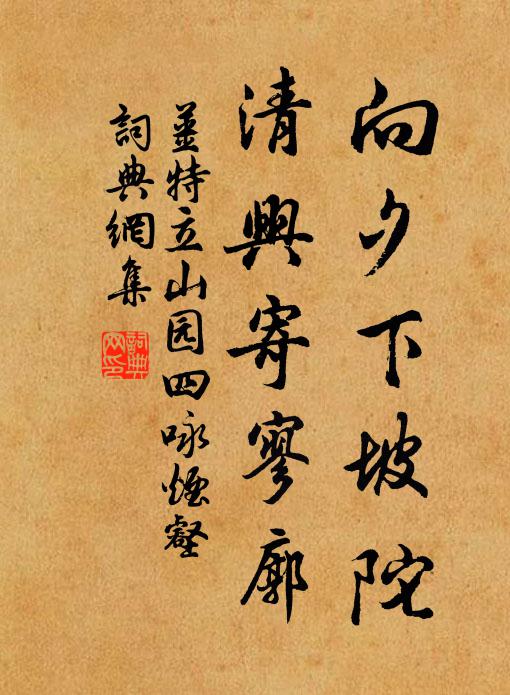 向夕下坡陀
清興寄寥廓
姜特立山园四咏烟壑
詞典網集
詞典
网印